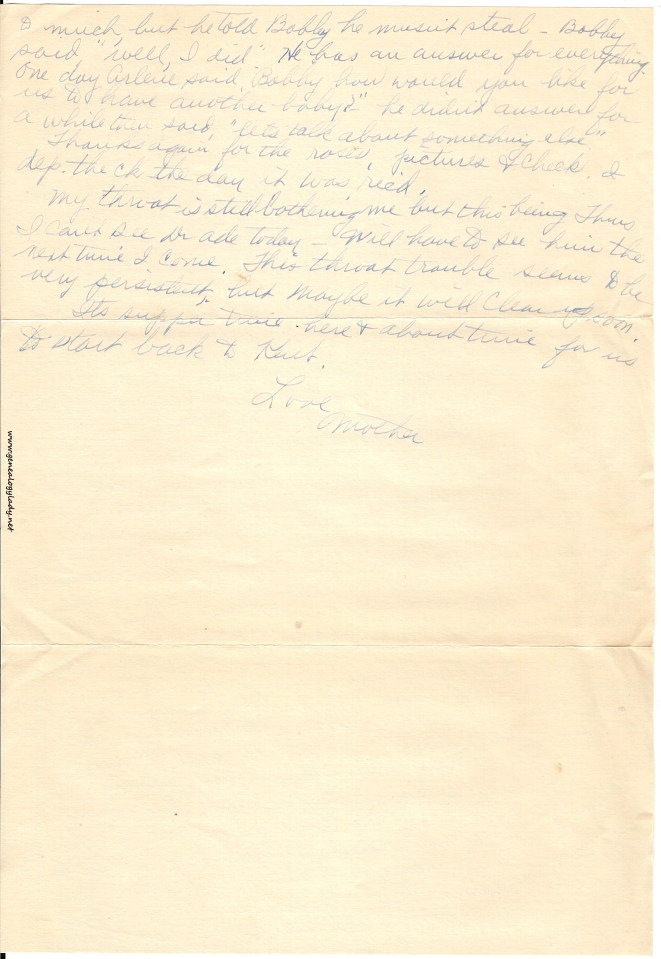 & much, but he told Bobby he musn't steal - Bobby
said "well, I did" He has an answer for everything.
One day Arlene said, "Bobby how would you like for
us to have another baby?" he didn't answer for
a while then said, "let's talk about something else"
Thanks again for the roses, pictures & check. I
dep. the ck the day it was rec'd.
My throat is still bothering me but this being Thurs
I can't see Dr Ade today - Will have to see him the
next time I come. This throat trouble seems to be
very persistent, but maybe it will clear up soon.
It's supper time here & about time for us
to start back to Kent.
Love
Mother
www.genealogylady.net